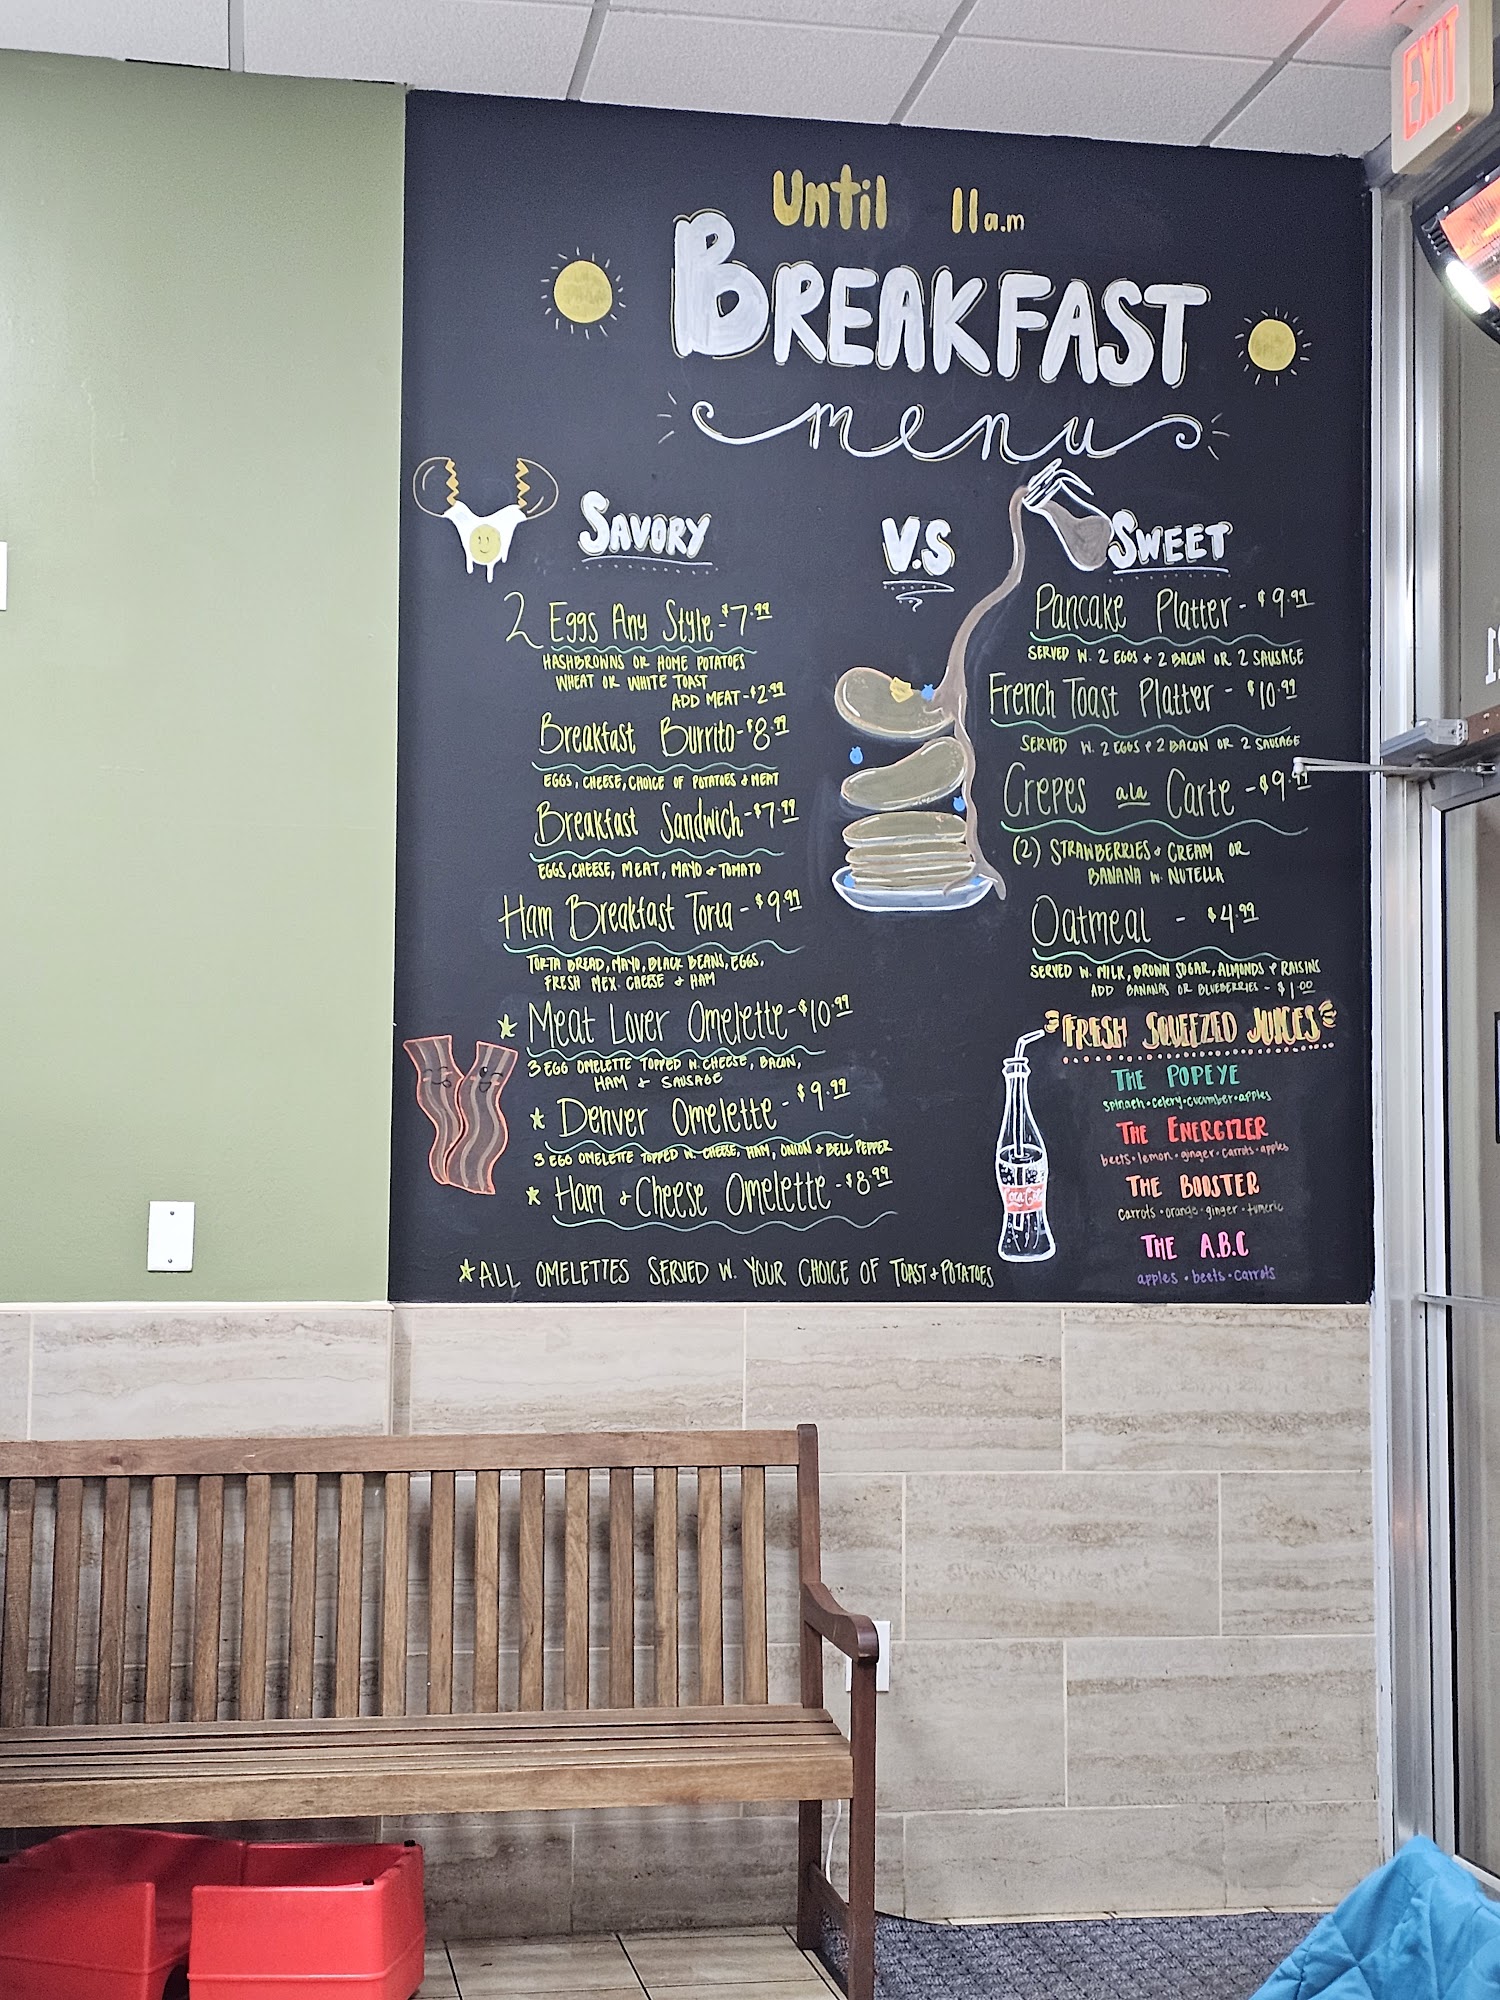 EXIT
Until 11a.m
BREAKFAST
menu
SAVORY
V.S
SWEET
2 Eggs Any Style - $7.99
HASHBROWNS OR HOME POTATOES
WHEAT OR WHITE TOAST
ADD MEAT - $2.99
Breakfast Burrito - $8.99
EGGS, CHEESE, CHOICE OF POTATOES & MEAT
Breakfast Sandwich - $7.99
EGGS, CHEESE, MEAT, MAYO & TOMATO
Ham Breakfast Torta - $9.99
TORTA BREAD, MAYO, BLACK BEANS, EGGS,
FRESH MEX. CHEESE & HAM
★ Meat Lover Omelette - $10.99
3 EGG OMELETTE TOPPED W. CHEESE, BACON,
HAM & SAUSAGE
★ Denver Omelette - $9.99
3 EGG OMELETTE TOPPED W. CHEESE, HAM, ONION & BELL PEPPER
★ Ham & Cheese Omelette - $8.99
★ ALL OMELETTES SERVED W. YOUR CHOICE OF TOAST & POTATOES
Pancake Platter - $9.99
SERVED W. 2 EGGS & 2 BACON OR 2 SAUSAGE
French Toast Platter - $10.99
SERVED W. 2 EGGS & 2 BACON OR 2 SAUSAGE
Crepes ala Carte - $9.99
(2) STRAWBERRIES & CREAM OR
BANANA W. NUTELLA
Oatmeal - $4.99
SERVED W. MILK, BROWN SUGAR, ALMONDS & RAISINS
ADD BANANAS OR BLUEBERRIES - $1.00
FRESH SQUEEZED JUICES
THE POPEYE
spinach • celery • cucumber • apples
THE ENERGIZER
beets • lemon • ginger • carrots • apples
THE BOOSTER
carrots • orange • ginger • tumeric
THE A.B.C
apples • beets • carrots
Coca-Cola